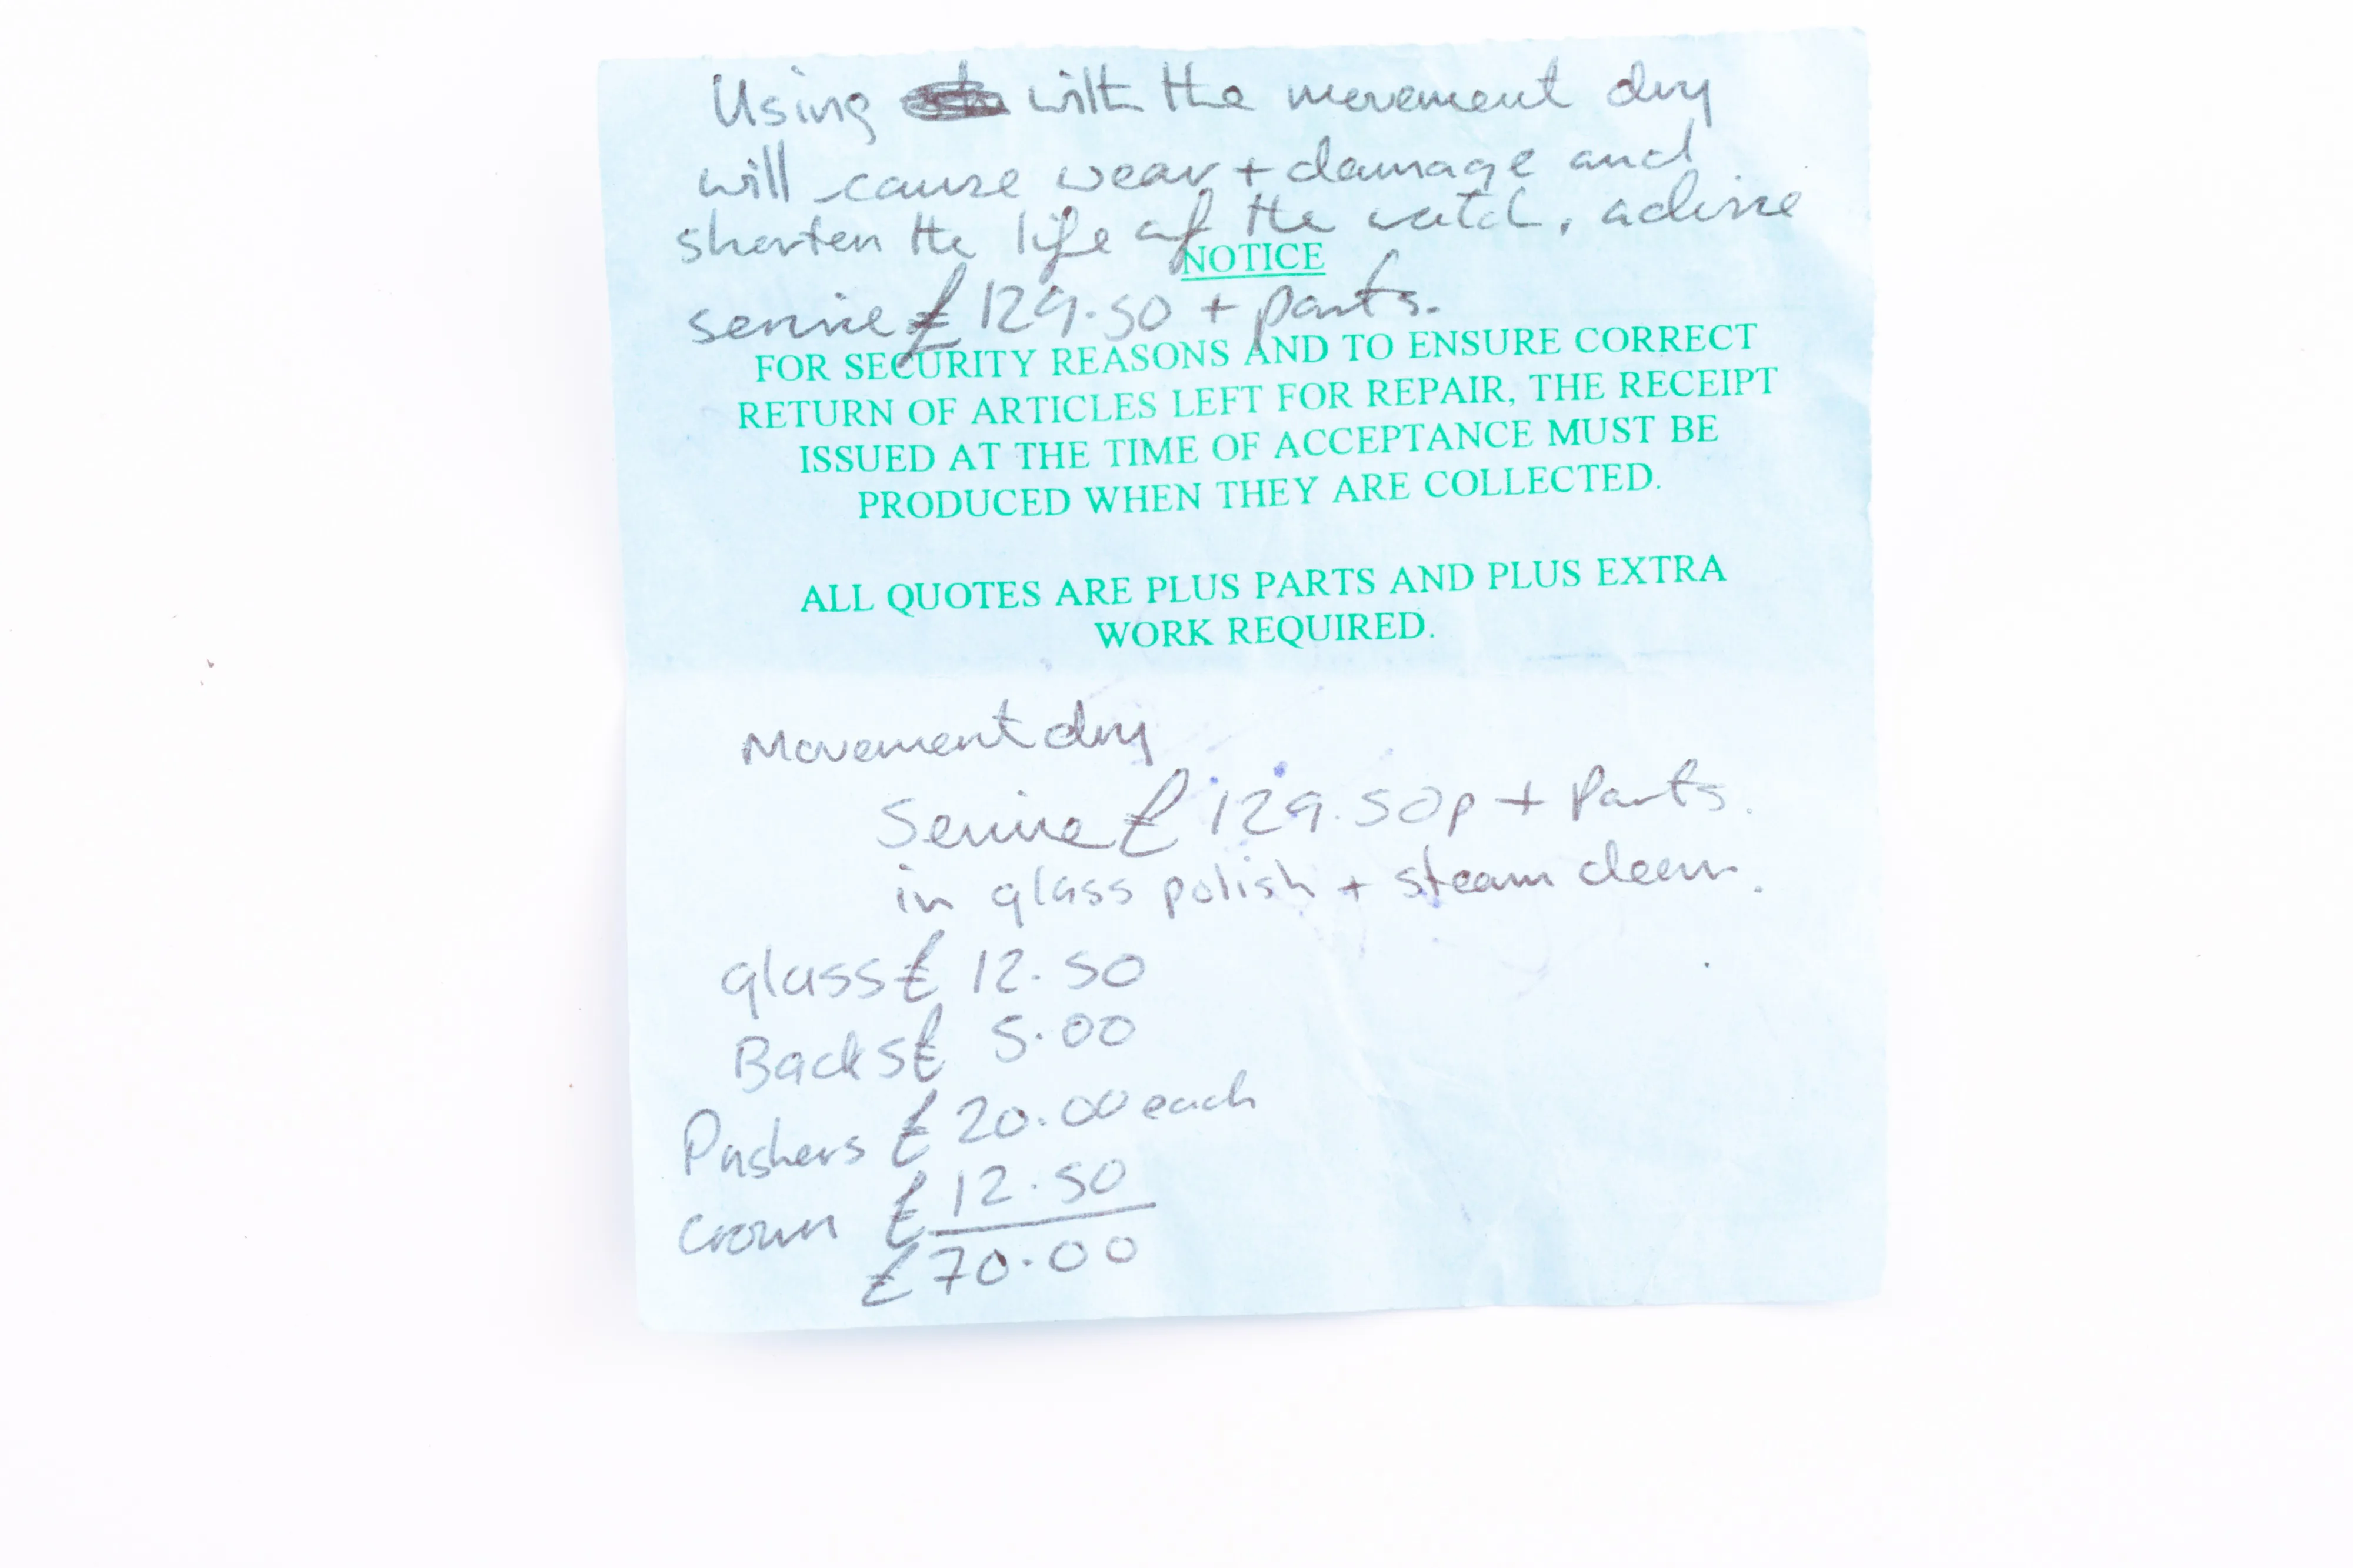 Using with the movement dry
will cause wear + damage and
shorten the life of the watch, advise
NOTICE
service £129.50 + parts.
FOR SECURITY REASONS AND TO ENSURE CORRECT
RETURN OF ARTICLES LEFT FOR REPAIR, THE RECEIPT
ISSUED AT THE TIME OF ACCEPTANCE MUST BE
PRODUCED WHEN THEY ARE COLLECTED.
ALL QUOTES ARE PLUS PARTS AND PLUS EXTRA
WORK REQUIRED.
Movement dry
Service £129.50p + Parts.
in glass polish + steam clean.
glass £ 12.50
Backs £ 5.00
Pushers £ 20.00 each
Crown £ 12.50
£70.00